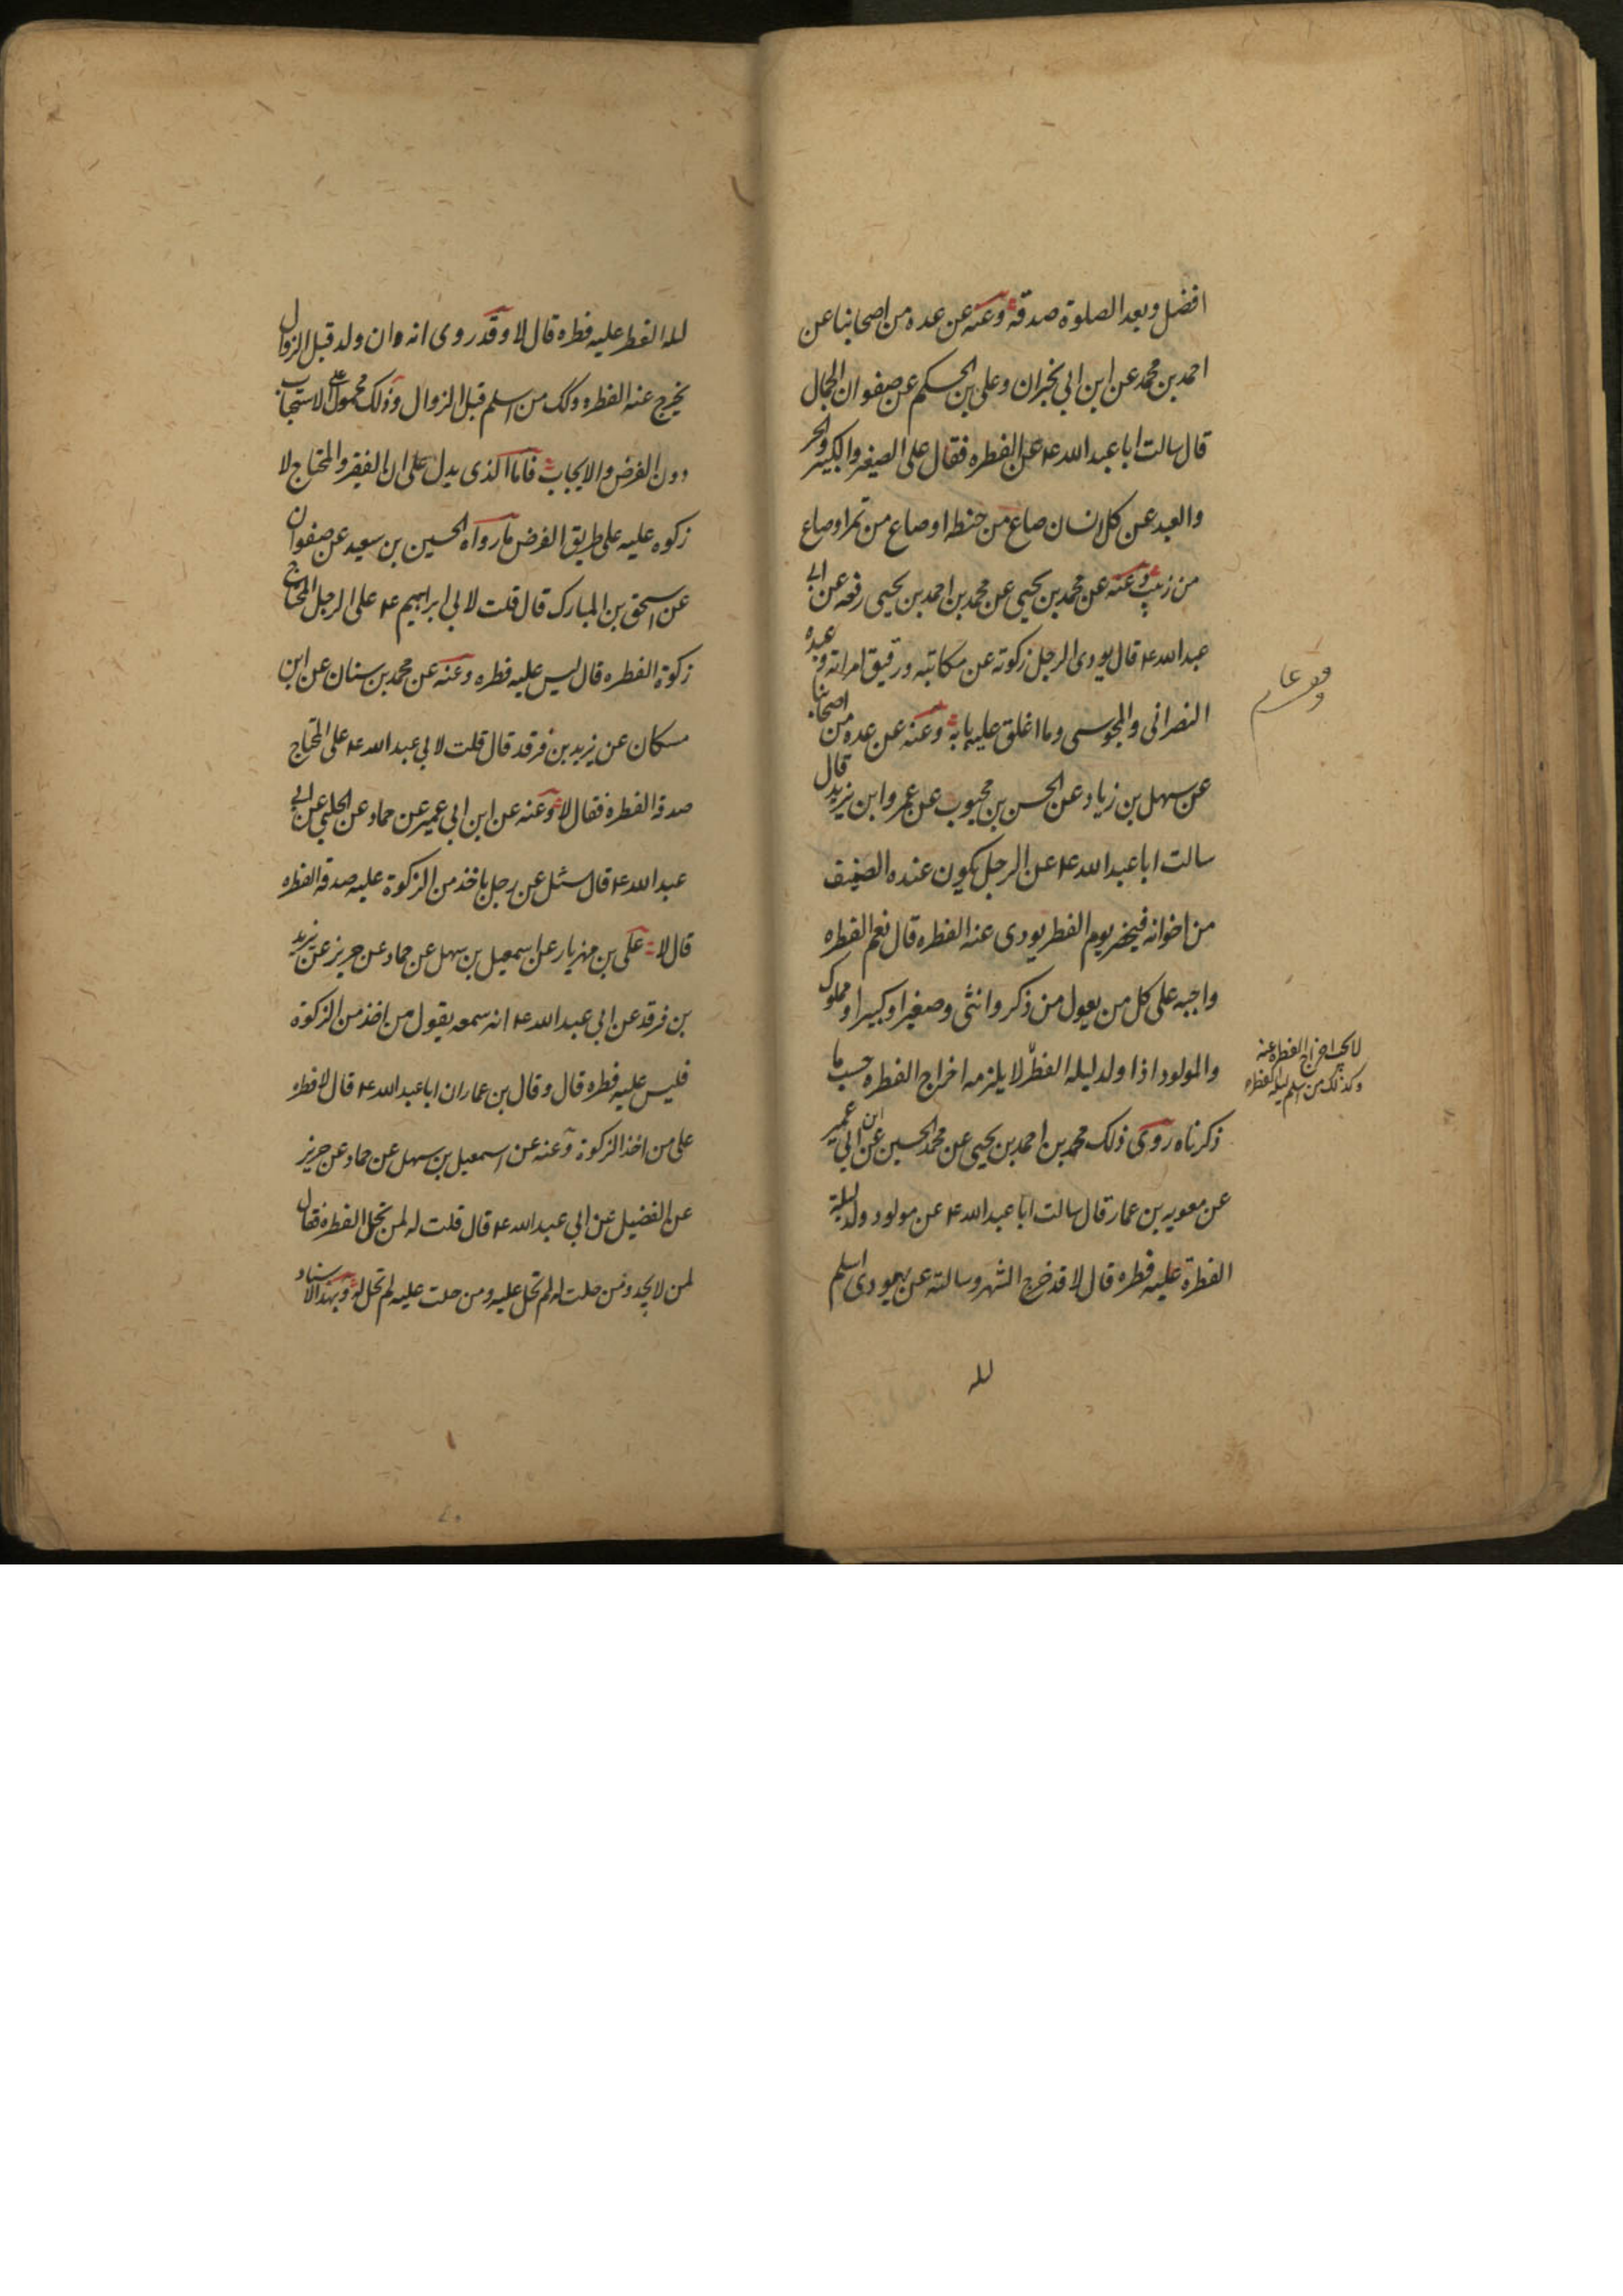 افضل وبعد الصلوة صدقة وعنه عن عده من اصحابنا عن
احمد بن محمد عن ابن ابی نجران وعلی بن الحکم عن صفوان الجمال
قال سالت ابا عبد الله ع عن الفطره فقال علی الصغیر والکبیر والحر
والعبد عن کل انسان صاع من حنطه او صاع من تمر او صاع
من زبیب وعنه عن محمد بن یحیی عن محمد بن احمد بن یحیی رفعه عن ابی
عبد الله ع قال یودی الرجل زکوته عن مکاتبه ورقیق امراته وعبده
النصرانی والمجوسی وما اغلق علیه بابه وعنه عن عده من اصحابنا
عن سهل بن زیاد عن الحسن بن محبوب عن عمر وابن یزید قال
سالت ابا عبد الله ع عن الرجل یکون عنده الضیف
من اخوانه فیحضر یوم الفطر یودی عنه الفطره قال نعم الفطره
واجبه علی کل من یعول من ذکر وانثی وصغیر او کبیر او مملوک
والمولود اذا ولد لیله الفطر لا یلزمه اخراج الفطره حسب ما
ذکرناه روی ذلک محمد بن احمد بن یحیی عن محمد الحسین عن ابن ابی عمیر
عن معویه بن عمار قال سالت ابا عبد الله ع عن مولود ولد لیلة
الفطرة علیه فطره قال لا قد خرج الشهر وسالته عن یهودی اسلم
لله
لا یجب اخراج الفطره عنه
وکذلک من اسلم لیله الفطره
لله الفطر علیه فطره قال لا وقد روی انه وان ولد قبل الزوال
یخرج عنه الفطره وکک من اسلم قبل الزوال وذلک محمول علی الاستحباب
دون الفرض والایجاب فاما الذی یدل علی ان الفقیر والمحتاج لا
زکوه علیه علی طریق الفرض ما رواه الحسین بن سعید عن صفوان
عن اسحق بن المبارک قال قلت لابی ابراهیم ع علی الرجل المحتاج
زکوة الفطره قال لیس علیه فطره وعنه عن محمد بن سنان عن ابن
مسکان عن یزید بن فرقد قال قلت لابی عبد الله ع علی المحتاج
صدقه الفطره فقال لا وعنه عن ابن ابی عمیر عن حماد عن الحلبی عن ابی
عبد الله ع قال سئل عن رجل یاخذ من الزکوة علیه صدقه الفطره
قال لا علی بن مهزیار عن اسمعیل بن سهل عن حماد عن حریز عن یزید
بن فرقد عن ابی عبد الله ع انه سمعه یقول من اخذ من الزکوة
فلیس علیه فطره قال وقال بن عمار ان ابا عبد الله ع قال لا فطره
علی من اخذ الزکوة وعنه عن اسمعیل بن سهل عن حماد عن حریز
عن الفضیل عن ابی عبد الله ع قال قلت له لمن تحل الفطره فقال
لمن لا یجد ومن حلت له لم تحل علیه ومن حلت علیه لم تحل له وبهذا الاسناد